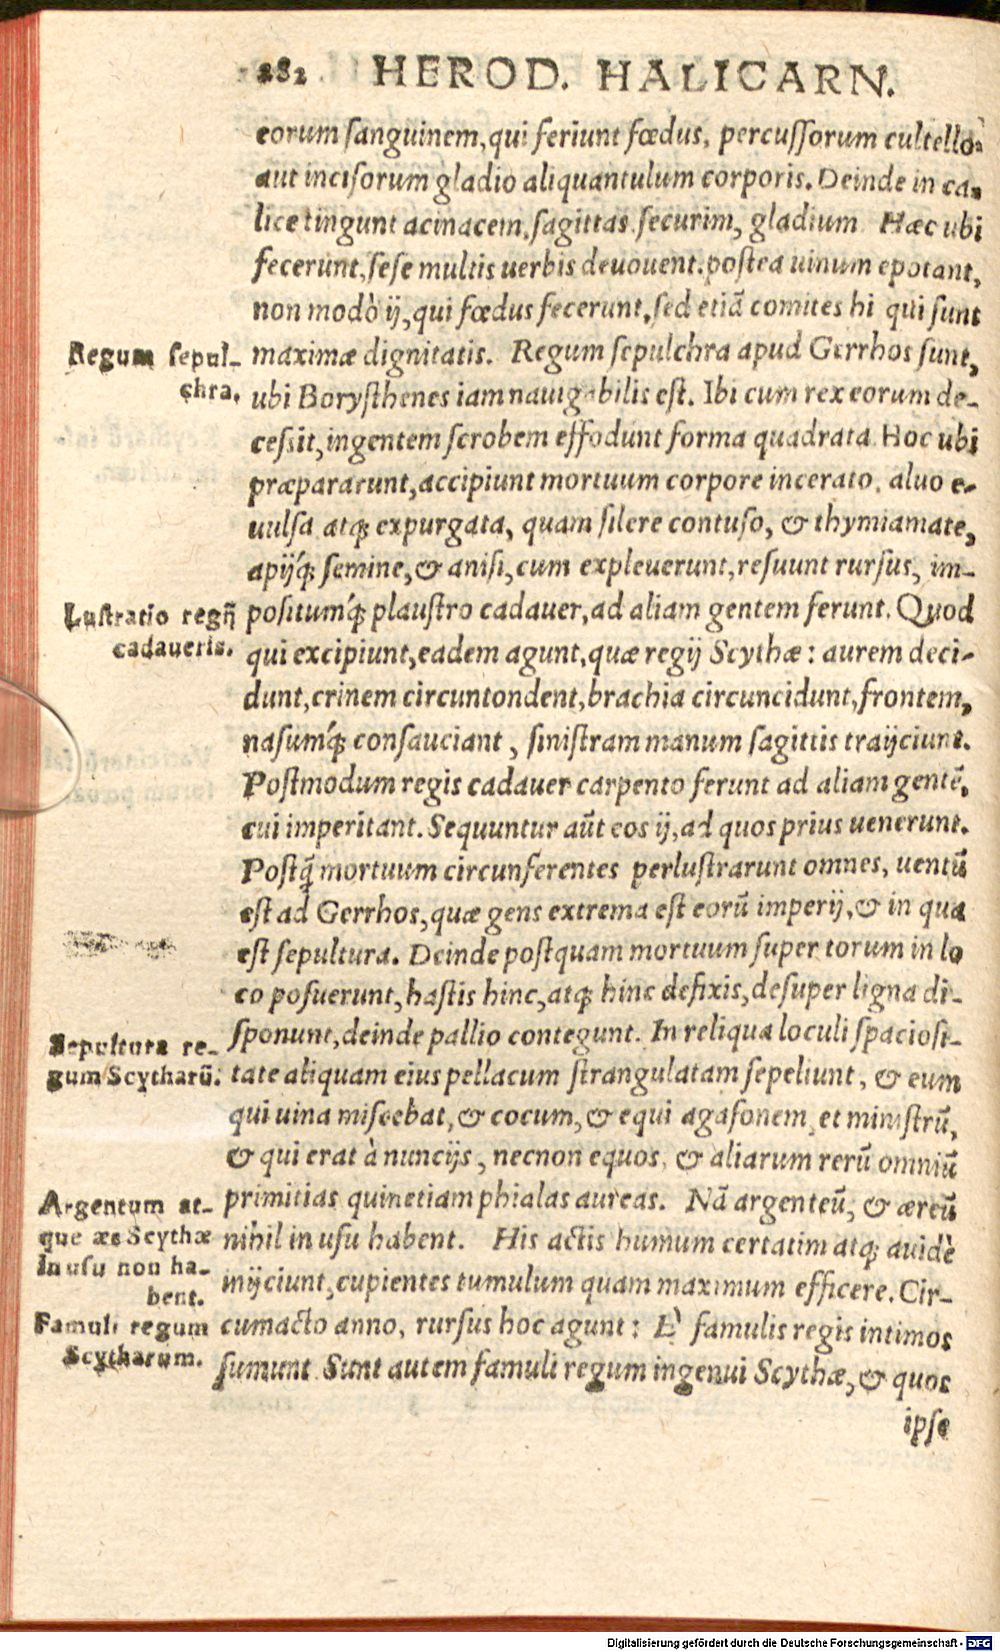 282 HEROD. HALICARN.
eorum sanguinem, qui feriunt fœdus, percussorum cultello,
aut incisorum gladio aliquantulum corporis. Deinde in ca-
lice tingunt acinacem, sagittas, securim, gladium. Hæc ubi
fecerunt, sese multis uerbis deuouent. postea uinum epotant,
non modò ij, qui fœdus fecerunt, sed etiã comites hi qui sunt
Regum sepul-
chra.
maximæ dignitatis. Regum sepulchra apud Gerrhos sunt,
ubi Borysthenes iam nauigabilis est. Ibi cum rex eorum de-
cessit, ingentem scrobem effodunt forma quadrata. Hoc ubi
præpararunt, accipiunt mortuum corpore incerato, aluo e-
uulsa atq; expurgata, quam silere contuso, & thymiamate,
apijq́; semine, & anisi, cum expleuerunt, resuunt rursus, im-
Lustratio regij
cadaueris.
positumq́; plaustro cadauer, ad aliam gentem ferunt. Quod
qui excipiunt, eadem agunt, quæ regij Scythæ: aurem deci-
dunt, crinem circuntondent, brachia circuncidunt, frontem,
nasumq́; consauciant, sinistram manum sagittis traijciunt.
Postmodum regis cadauer carpento ferunt ad aliam gentẽ,
cui imperitant. Sequuntur aũt eos ij, ad quos prius uenerunt.
Postq̃ mortuum circunferentes perlustrarunt omnes, uentũ
est ad Gerrhos, quæ gens extrema est eorũ imperij, & in qua
est sepultura. Deinde postquam mortuum super torum in lo
co posuerunt, hastis hinc, atq; hinc defixis, desuper ligna di-
Sepultura re-
gum Scytharũ.
sponunt, deinde pallio contegunt. In reliqua loculi spaciosi-
tate aliquam eius pellacum strangulatam sepeliunt, & eum
qui uina miscebat, & cocum, & equi agasonem, et ministrũ,
& qui erat à nuncijs, necnon equos, & aliarum rerũ omniũ
Argentum at-
que æs Scythæ
in usu non ha-
bent.
primitias quinetiam phialas aureas. Nã argenteũ, & æreũ
nihil in usu habent. His actis humum certatim atq; auidè
inijciunt, cupientes tumulum quam maximum efficere. Cir-
Famuli regum
Scytharum.
cumacto anno, rursus hoc agunt: È famulis regis intimos
sumunt. Sunt autem famuli regum ingenui Scythæ, & quos
ipse
Digitalisierung gefördert durch die Deutsche Forschungsgemeinschaft - DFG